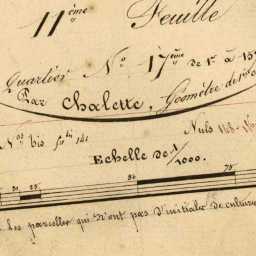 11ème Feuille
Quartier No. 17ème de 1r. à 15
Par Chalette, Géomètre de 1re
Nos bis
Nuls
Echelle de 1/1000.
25 50 75
Les parcelles qui n'ont pas d'initiale de culture